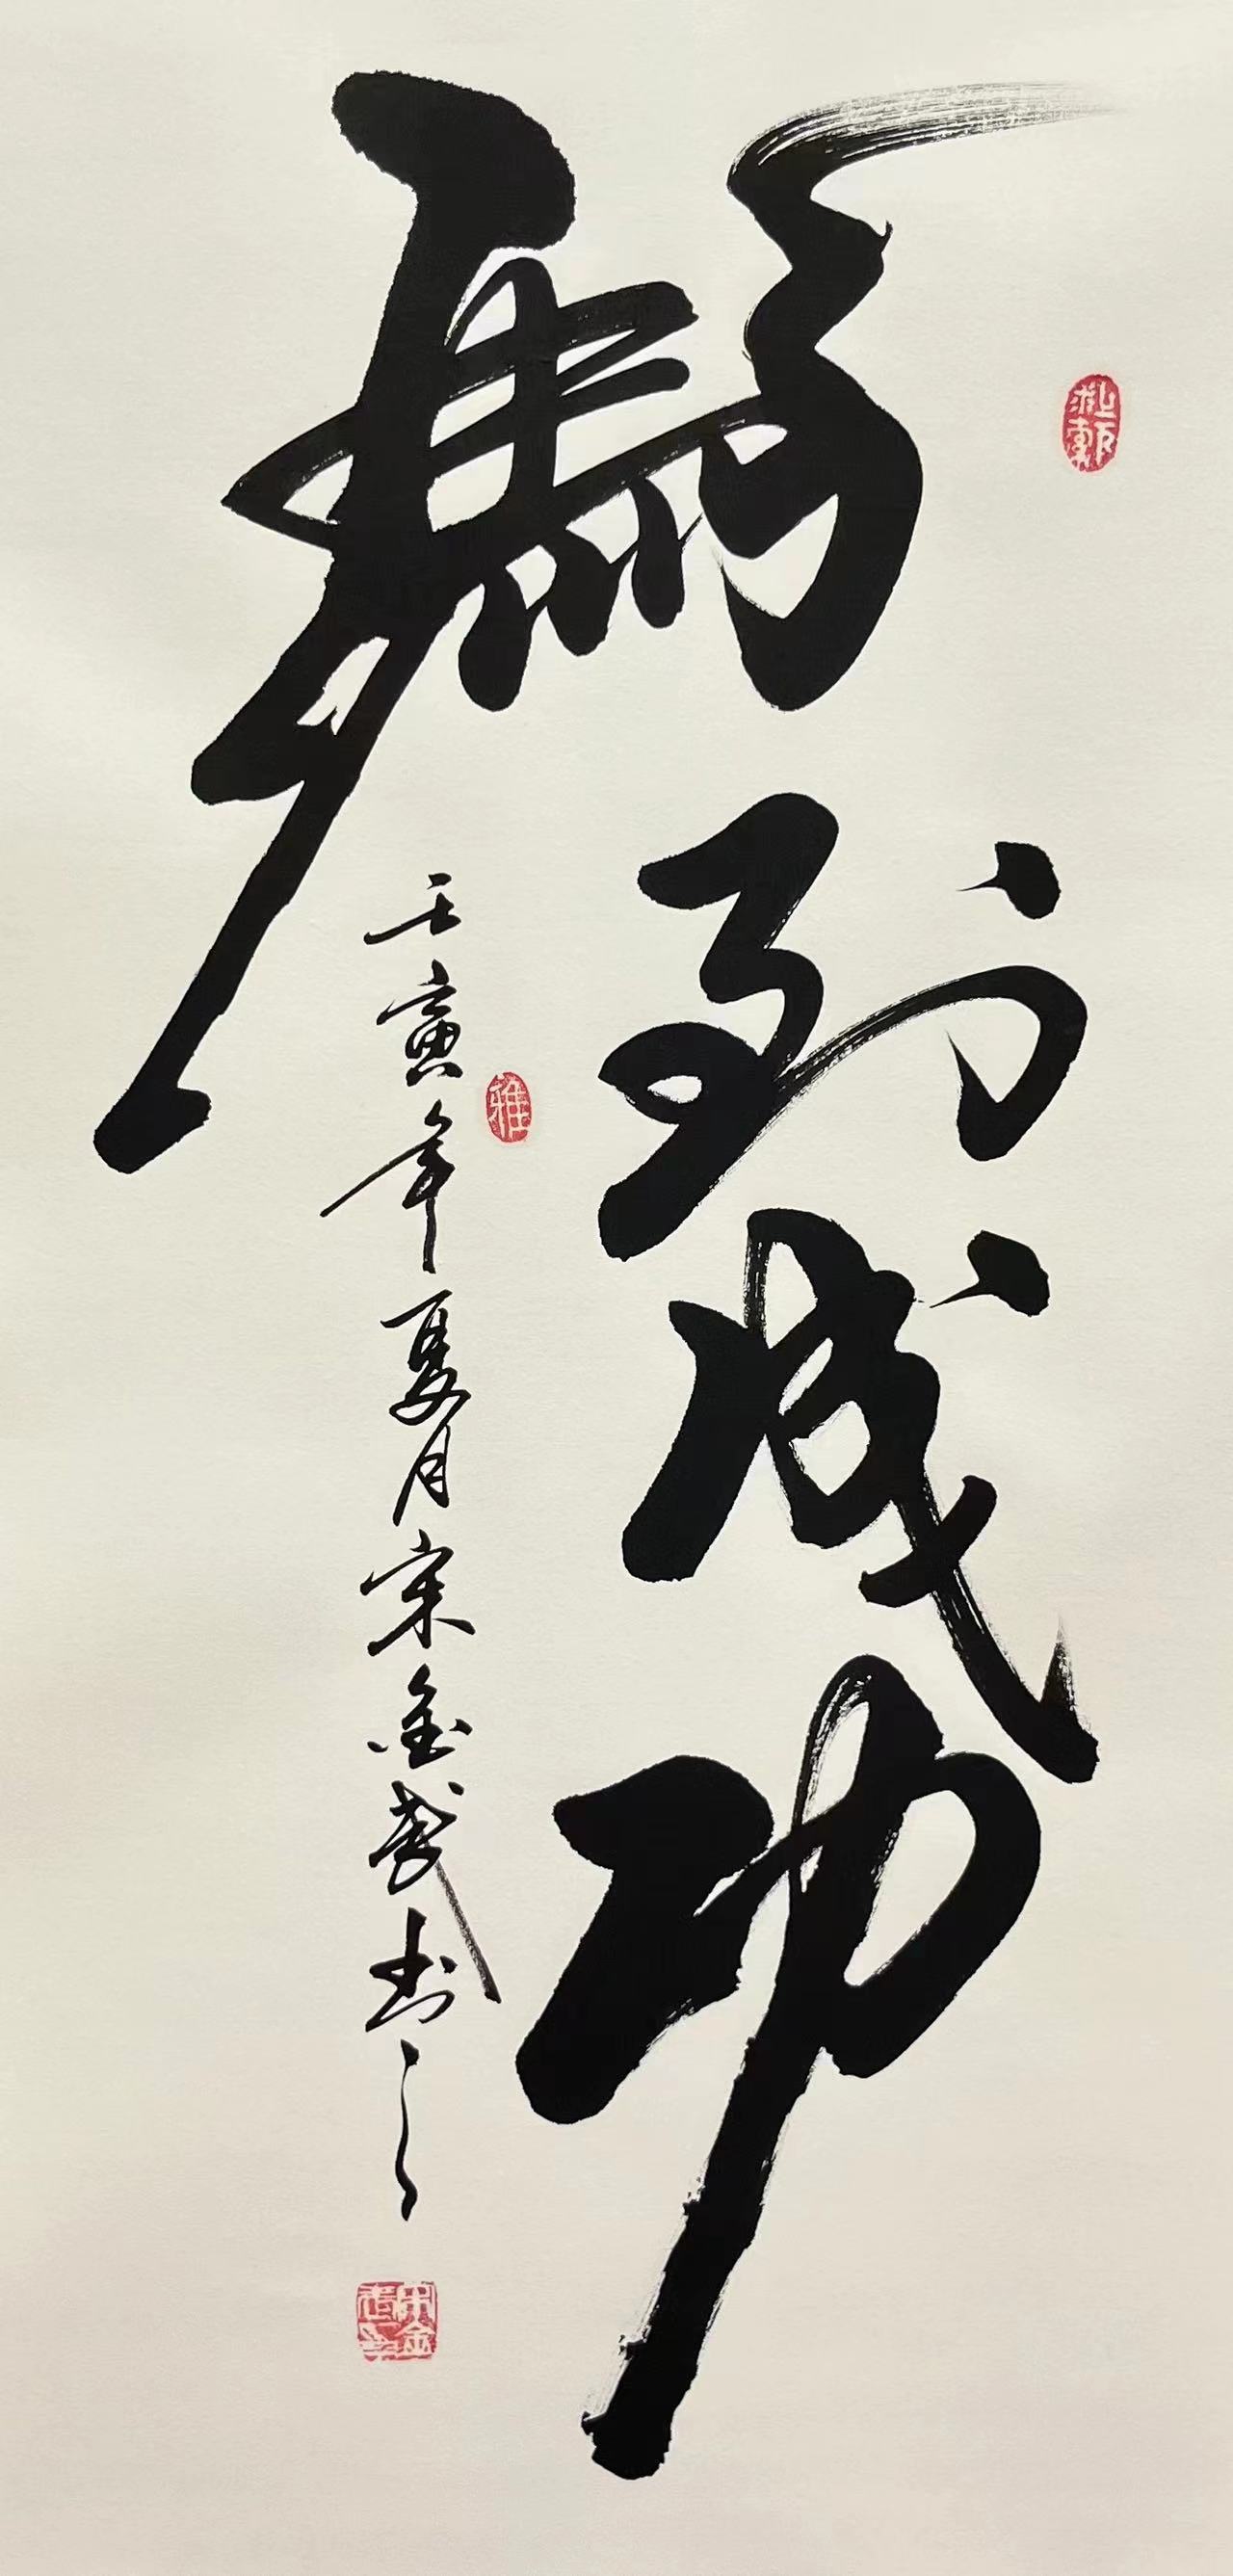 馬到成功
壬寅年夏月宋金武书之
雅